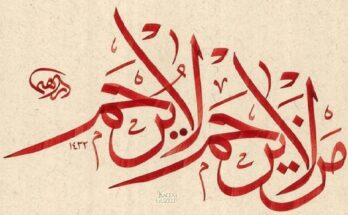 من لا يرحم لا يُرحم
١٤٣٢